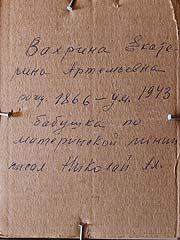 Вахрина Екате-
рина Артемьевна
рожд. 1866 - ум. 1943
бабушка по
материнской линии
писал Николай Ал.